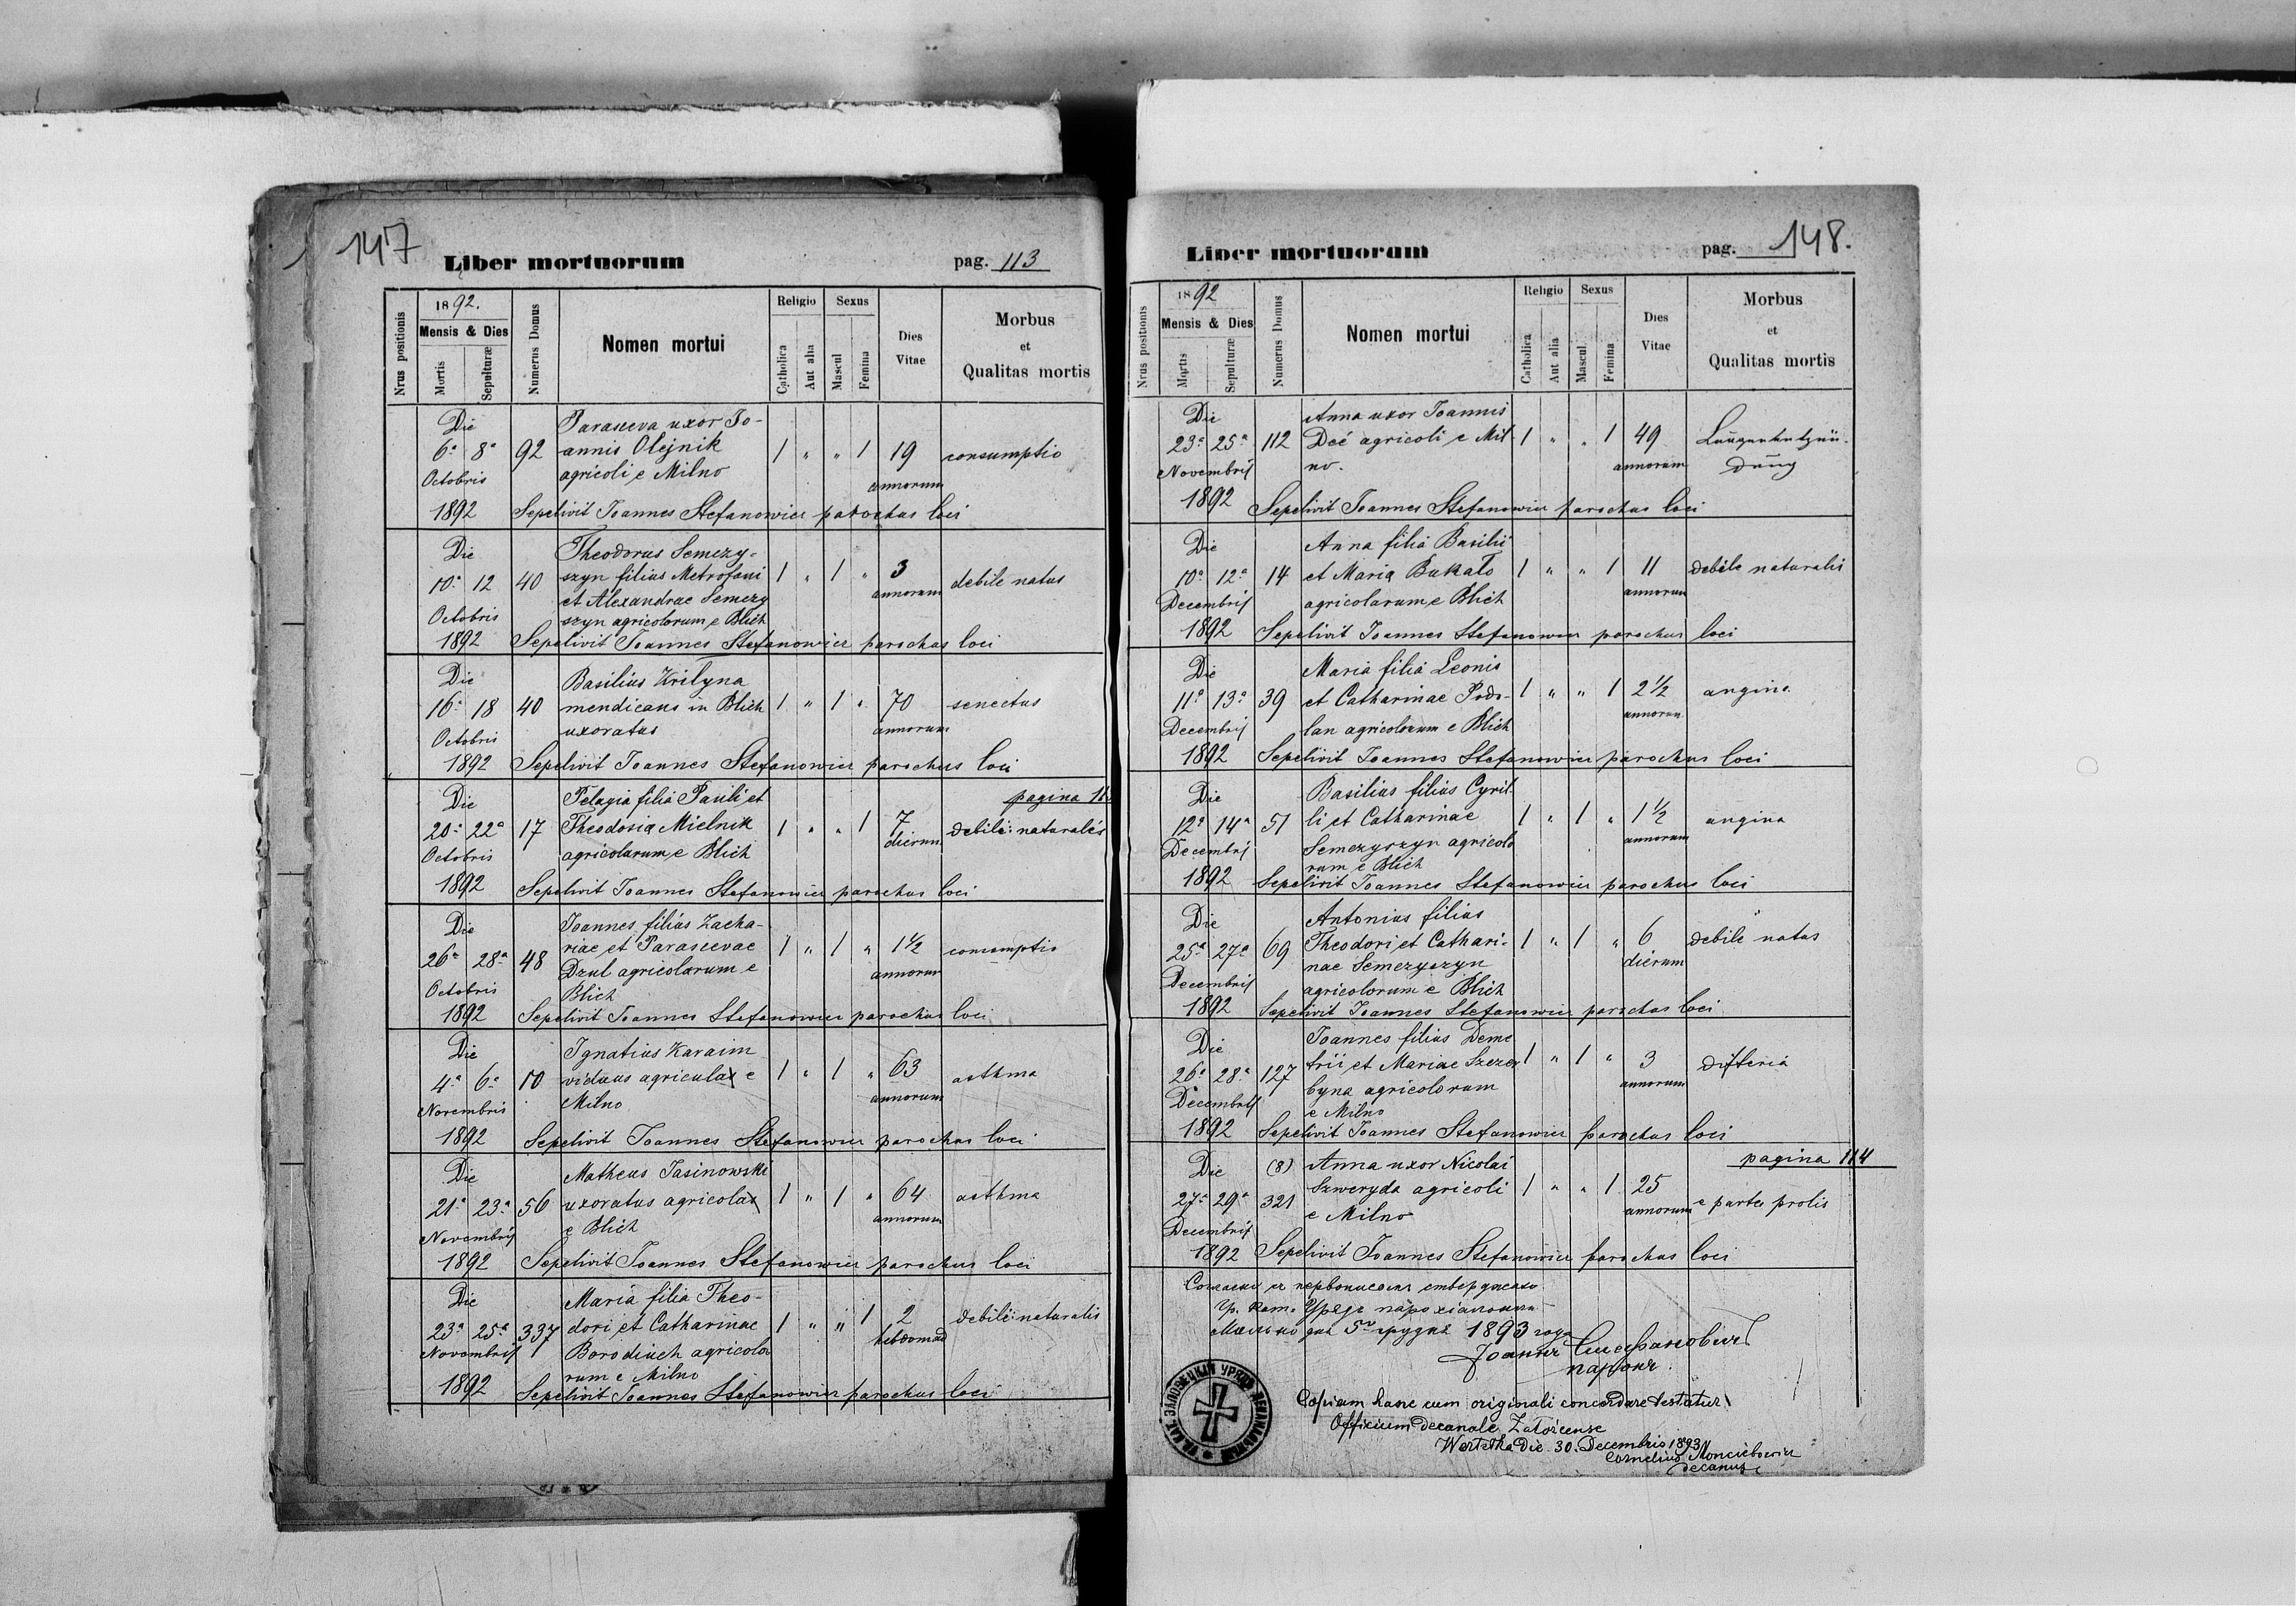 147
Liber mortuorum pag. 113
Nrus positionis
1892.
Mensis & Dies
Mortis
Sepulturæ
Numerus Domus
Nomen mortui
Religio
Catholica
Aut alia
Sexus
Mascul
Femina
Dies
Vitae
Morbus
et
Qualitas mortis
Die Parasceva uxor Jo-
6ª 8ª 92 annis Olejnik 1 " " 1 19 consumptio
Octobris agricoli e Milno annorum
1892 Sepelivit Joannes Stefanowicz parochus loci
Die Theodorus Semczy-
10ª 12 40 szyn filius Metrofani 1 " 1 " 3 debile natus
et Alexandrae Semczy annorum
Octobris szyn agricolorum e Blich
1892 Sepelivit Joannes Stefanowicz parochus loci
Die Basilius Krilyna
16ª 18 40 mendicans in Blich 1 " 1 " 70 senectus
Octobris uxoratus annorum
1892 Sepelivit Joannes Stefanowicz parochus loci
Die Pelagia filia Pauli et pagina
20ª 22ª 17 Theodosia Mielnik 1 " " 1 7 debili: naturalis
Octobris agricolarum e Blich dierum
1892 Sepelivit Joannes Stefanowicz parochus loci
Die Joannes filius Zacha-
26ª 28ª 48 riae et Parascevae 1 " 1 " 1½ consumptio
Dzul agricolarum e annorum
Octobris Blich
1892 Sepelivit Joannes Stefanowicz parochus loci
Die Ignatius Karaim
4ª 6ª 10 viduus agricula e 1 " 1 " 63 asthma
Novembris Milno annorum
1892 Sepelivit Joannes Stefanowicz parochus loci
Die Matheus Jasinowski
21ª 23ª 56 uxoratus agricola 1 " 1 " 64 asthma
Novembris e Blich annorum
1892 Sepelivit Joannes Stefanowicz parochus loci
Die Maria filia Theo-
23ª 25ª 337 dori et Catharinae 1 " " 1 2 debili: naturalis
Novembris Borodiuch agricolo hebdomad
1892 rum e Milno
Sepelivit Joannes Stefanowicz parochus loci
Liber mortuorum pag. 148.
Nrus positionis
1892
Mensis & Dies
Mortis
Sepulturæ
Numerus Domus
Nomen mortui
Religio
Catholica
Aut alia
Sexus
Mascul
Femina
Dies
Vitae
Morbus
et
Qualitas mortis
Die Anna uxor Joannis
23ª 25ª 112 Deć agricoli e Mil- 1 " " 1 49
Novembris no. annorum
1892 Sepelivit Joannes Stefanowicz parochus loci
Die Anna filia Basilii
10ª 12ª 14 et Maria Bukało 1 " " 1 11 debile naturalis
Decembris agricolarum e Blich annorum
1892 Sepelivit Joannes Stefanowicz parochus loci
Die Maria filia Leonis
11ª 13ª 39 et Catharinae Podo- 1 " " 1 2½ angina
Decembris lan agricolorum e Blich annorum
1892 Sepelivit Joannes Stefanowicz parochus loci
Die Basilius filius Cyril-
12ª 14ª 51 li et Catharinae 1 " 1 " 1½ angina
Decembris Semczyszyn agricolo annorum
1892 rum e Blich
Sepelivit Joannes Stefanowicz parochus loci
Die Antonius filius
25ª 27ª 69 Theodori et Cathari- 1 " 1 " 6 debile natus
nae Semczyszyn dierum
Decembris agricolorum e Blich
1892 Sepelivit Joannes Stefanowicz parochus loci
Die Joannes filius Deme
26ª 28ª 127 trii et Mariae Szczer 1 " 1 " 3 difteria
byna agricolorum annorum
Decembris e Milno
1892 Sepelivit Joannes Stefanowicz parochus loci
pagina 114
Die (8) Anna uxor Nicolai
27ª 29ª 321 Szweryda agricoli 1 " " 1 25 e partes prolis
Decembris e Milno annorum
1892 Sepelivit Joannes Stefanowicz parochus loci
Гр. кат. Уряд парохіяльный
Мильно дня 5го грудня 1893 года
Іоаннъ Стефановичъ
парохъ.
Copiam hanc cum originali concordare testatur
Officium decanale Załoscense
Wertełka Die 30. Decembris 1893
Cornelius
decanus